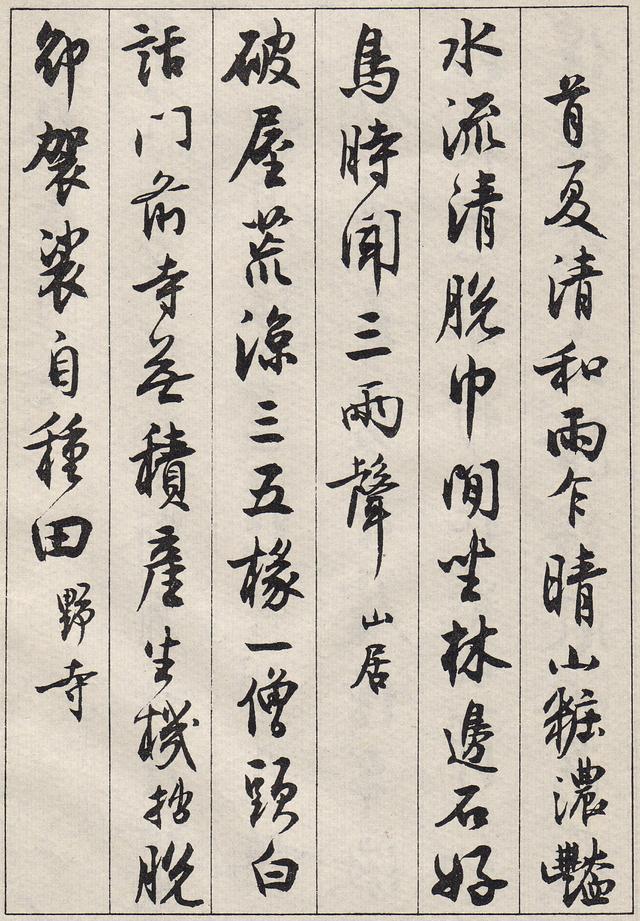 首夏清和雨乍晴山粧濃豔
水流清脱巾閒坐林邊石好
鳥時聞三兩聲 山居
破屋荒涼三五椽一僧頭白
話门前寺無積產生機拙脱
卻袈裟自種田 野寺